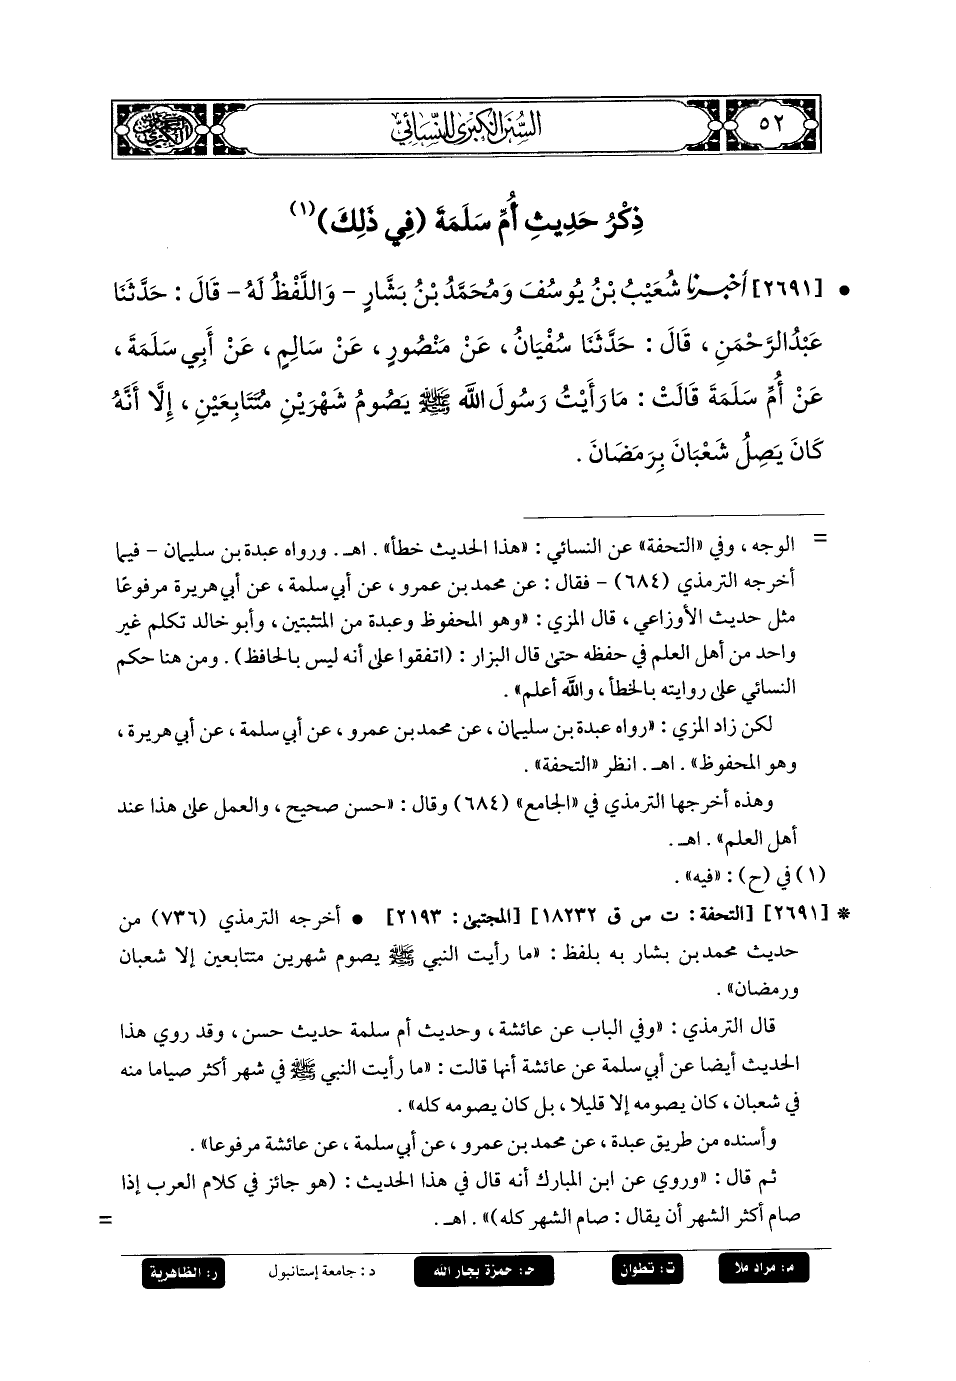 ٥٢
السنن الكبرى للنسائي
ذِكْرُ حَدِيثِ أُمِّ سَلَمَةَ (فِي ذَلِكَ)(١)
• [٢٦٩١] أخبرنا شُعَيْبُ بْنُ يُوسُفَ وَمُحَمَّدُ بْنُ بَشَّارٍ - وَاللَّفْظُ لَهُ - قَالَ : حَدَّثَنَا
عَبْدُ الرَّحْمَنِ ، قَالَ : حَدَّثَنَا سُفْيَانُ ، عَنْ مَنْصُورٍ ، عَنْ سَالِمٍ ، عَنْ أَبِي سَلَمَةَ ،
عَنْ أُمِّ سَلَمَةَ قَالَتْ : مَا رَأَيْتُ رَسُولَ اللَّه ﷺ يَصُومُ شَهْرَيْنِ مُتَتَابِعَيْنِ ، إِلَّا أَنَّهُ
كَانَ يَصِلُ شَعْبَانَ بِرَمَضَانَ .
= الوجه ، وفي «التحفة» عن النسائي : «هذا الحديث خطأ» . اهـ. ورواه عبدة بن سليمان - فيما
أخرجه الترمذي (٦٨٤) - فقال : عن محمد بن عمرو ، عن أبي سلمة ، عن أبي هريرة مرفوعًا
مثل حديث الأوزاعي ، قال المزي : «وهو المحفوظ وعبدة من المتثبتين ، وأبو خالد تكلم غير
واحد من أهل العلم في حفظه حتى قال البزار : (اتفقوا على أنه ليس بالحافظ) . ومن هنا حكم
النسائي على روايته بالخطأ ، والله أعلم» .
لكن زاد المزي : «رواه عبدة بن سليمان ، عن محمد بن عمرو ، عن أبي سلمة ، عن أبي هريرة ،
وهو المحفوظ» . اهـ. انظر «التحفة» .
وهذه أخرجها الترمذي في «الجامع» (٦٨٤) وقال : «حسن صحيح ، والعمل على هذا عند
أهل العلم» . اهـ.
(١) في (ح) : «فيه» .
* [٢٦٩١] [التحفة: ت س ق ١٨٢٣٢] [المجتبى: ٢١٩٣] • أخرجه الترمذي (٧٣٦) من
حديث محمد بن بشار به بلفظ : «ما رأيت النبي ﷺ يصوم شهرين متتابعين إلا شعبان
ورمضان» .
قال الترمذي : «وفي الباب عن عائشة ، وحديث أم سلمة حديث حسن ، وقد روي هذا
الحديث أيضا عن أبي سلمة عن عائشة أنها قالت : «ما رأيت النبي ﷺ في شهر أكثر صياما منه
في شعبان ، كان يصومه إلا قليلا ، بل كان يصومه كله» .
وأسنده من طريق عبدة ، عن محمد بن عمرو ، عن أبي سلمة ، عن عائشة مرفوعا» .
ثم قال : «وروي عن ابن المبارك أنه قال في هذا الحديث : (هو جائز في كلام العرب إذا
صام أكثر الشهر أن يقال : صام الشهر كله)» . اهـ. =
م: مراد ملا ت: تطوان حـ: حمزة بجار الله د: جامعة إستانبول ر: الظاهرية